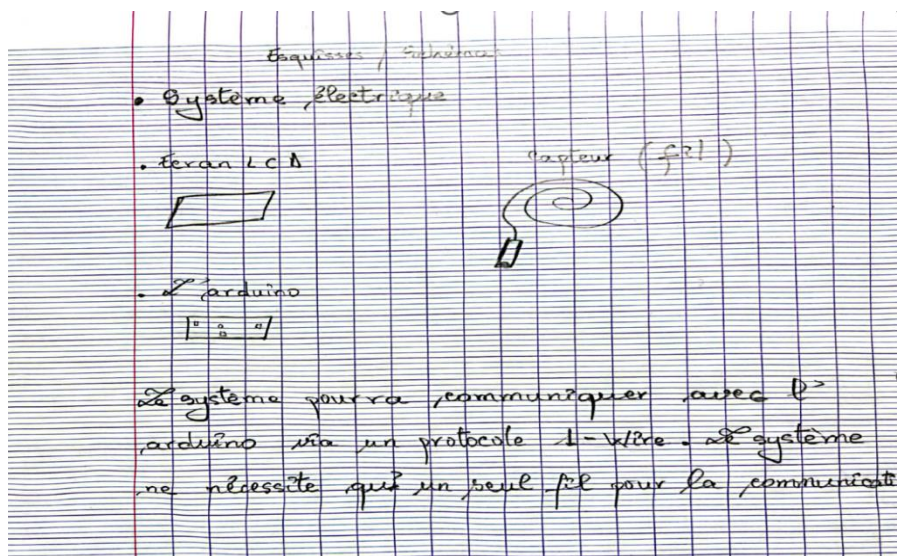 Esquisses /
• Système électrique
• Écran LCD
Capteur (fil)
• L'arduino
Le système pourra communiquer avec l'
arduino via un protocole 1-Wire. Le système
ne nécessite qu'un seul fil pour la communicati